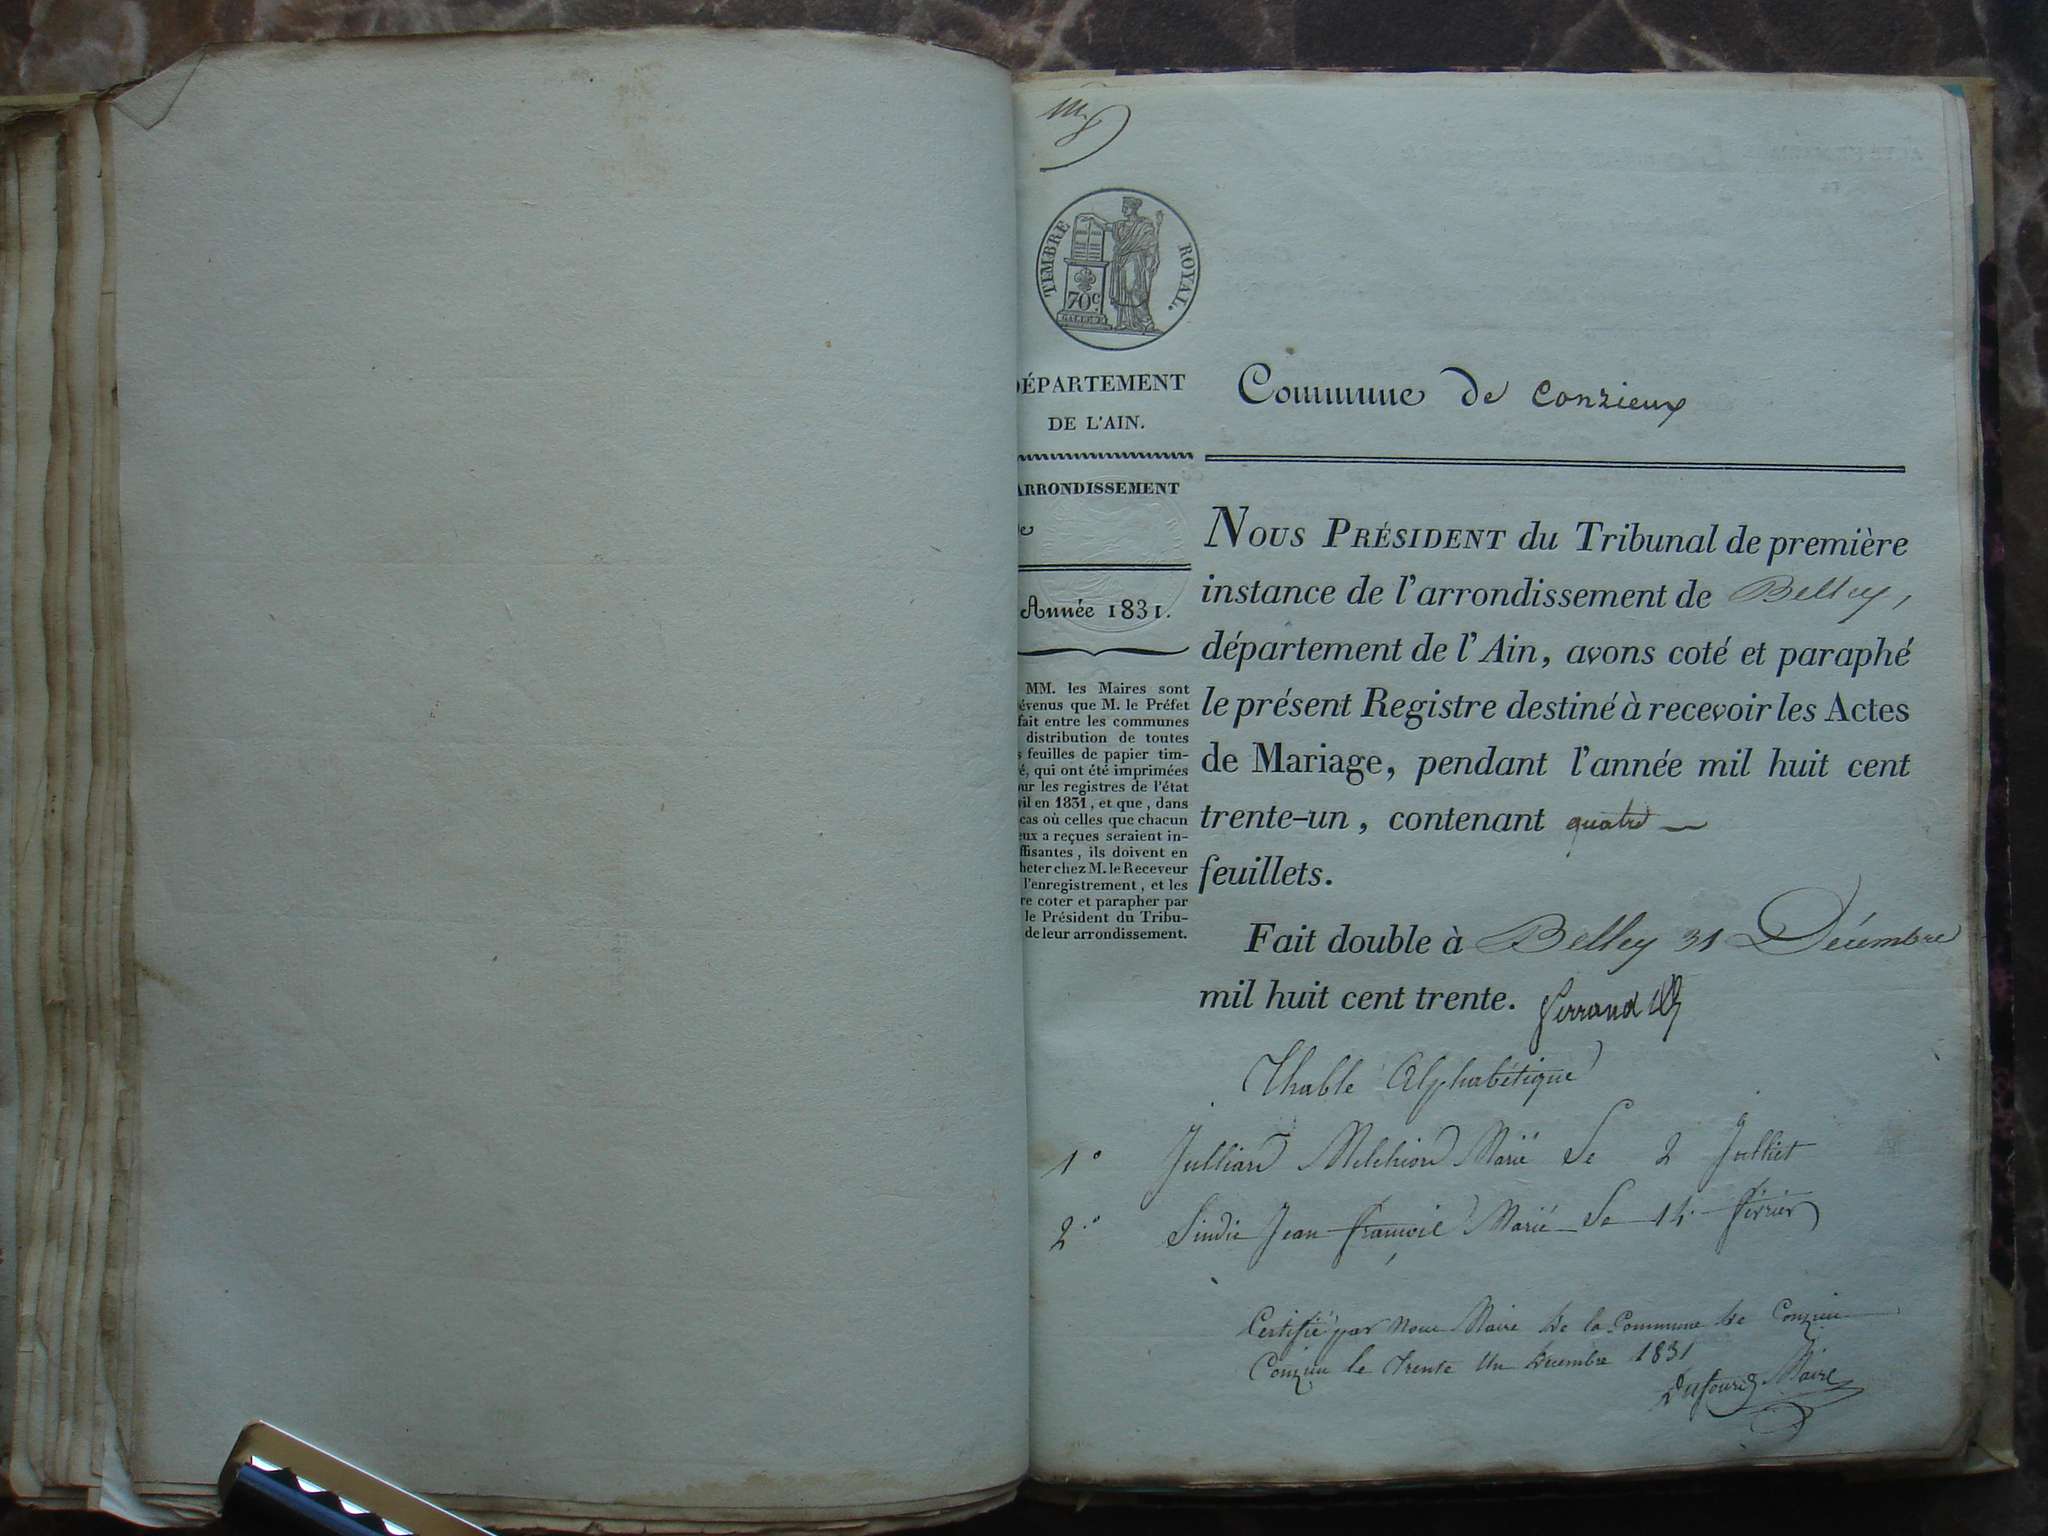 TIMBRE ROYAL.
70c
DÉPARTEMENT
DE L'AIN.
ARRONDISSEMENT
de
Année 1831.
MM. les Maires sont
évenus que M. le Préfet
fait entre les communes
distribution de toutes
s feuilles de papier tim-
é, qui ont été imprimées
ur les registres de l'état
vil en 1831, et que, dans
cas où celles que chacun
eux a reçues seraient in-
ffisantes, ils doivent en
heter chez M. le Receveur
l'enregistrement, et les
re coter et parapher par
le Président du Tribu-
de leur arrondissement.
Commune de Conzieux
NOUS PRÉSIDENT du Tribunal de première
instance de l'arrondissement de Belley,
département de l'Ain, avons coté et paraphé
le présent Registre destiné à recevoir les Actes
de Mariage, pendant l'année mil huit cent
trente-un, contenant quatre
feuillets.
Fait double à Belley 31 Décembre
mil huit cent trente. Ferrand
Thable Alphabétique
1° Julliard Melchior Marié Le 2 Julliet
2° Sindic Jean françois Marié Le 14 février
Certifié par Nous Maire de la Commune de Conzieu
Conzieu le trente Un décembre 1831
Dufour Maire